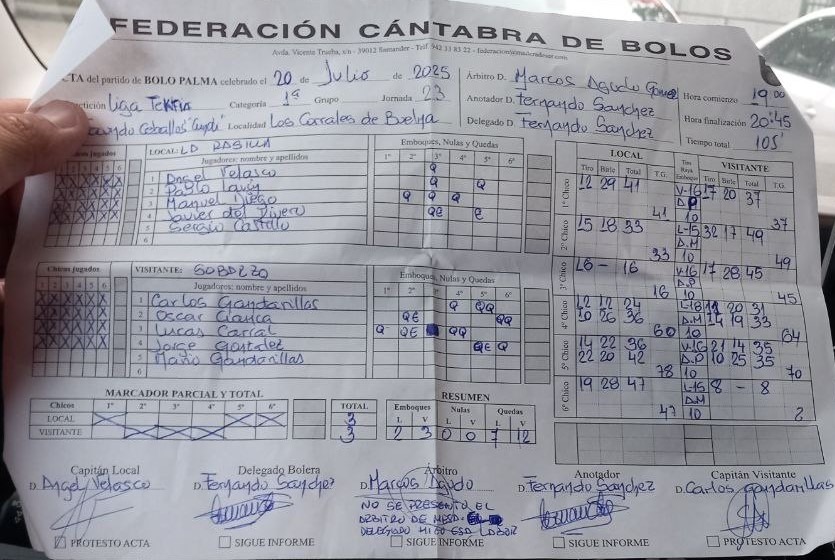 FEDERACIÓN CÁNTABRA DE BOLOS
Avda. Vicente Trueba, s/n - 39012 Santander - Telf. 942 33 83 22
CTA del partido de BOLO PALMA celebrado el 20 de Julio de 2025
Árbitro D. Marcos Agudo Gomez
Liga Tekfia Categoría 1ª Grupo Jornada 23
Anotador D. Fernando Sanchez
Hora comienzo 19 00
Localidad Los Corrales de Buelna
Delegado D. Fernando Sanchez
Hora finalización 20:45
Tiempo total 105'
LOCAL: LA RASILLA
Emboques, Nulas y Quedas
Jugadores: nombre y apellidos
1º 2º 3º 4º 5º 6º
1 Angel Velasco Q
2 Pablo Lavin Q
3 Manuel Diego Q Q Q
4 Javier del Rivero QE e
5 Sergio Castillo
6
Chicos jugados
VISITANTE: SOBARZO
Emboques, Nulas y Quedas
1 2 3 4 5 6
Jugadores: nombre y apellidos
1º 2º 3º 4º 5º 6º
1 Carlos Gandarillas Q QQ
2 Oscar Cianca QE QQ
3 Lucas Carral Q QE QQ
4 Jorge Gonzalez QE Q
5 Mario Gandarillas
6
LOCAL VISITANTE
Tiro Birle Total T.G. Tiro Raya Emboque Tiro Birle Total T.G.
1º Chico 12 29 41 V-16 17 20 37
41 10 37
2º Chico 15 18 33 L-15 32 17 49
A.M
33 10 49
16 - 16 V-16 17 28 45
16 10 45
4º Chico 12 12 24 L-18 20 31
10 26 36 A.M 14 19 33
60 10 64
5º Chico 14 22 36 V-16 21 14 35
22 20 42 10 25 35
78 10 70
6º Chico 19 28 47 L-15 8 - 8
A.M
47 10
MARCADOR PARCIAL Y TOTAL
Chicos 1º 2º 3º 4º 5º 6º TOTAL
LOCAL 3
VISITANTE 3
RESUMEN
Emboques Nulas Quedas
L V L V L V
2 3 0 0 7 12
Capitán Local
D. Angel Velasco
Delegado Bolera
D. Fernando Sanchez
Árbitro
D. Marcos Agudo
Anotador
D. Fernando Sanchez
Capitán Visitante
D. Carlos Gandarillas
NO SE PRESENTO EL
ARBITRO DE MESA.
DELEGADO HIZO ESA LABOR
PROTESTO ACTA
SIGUE INFORME
SIGUE INFORME
SIGUE INFORME
PROTESTO ACTA